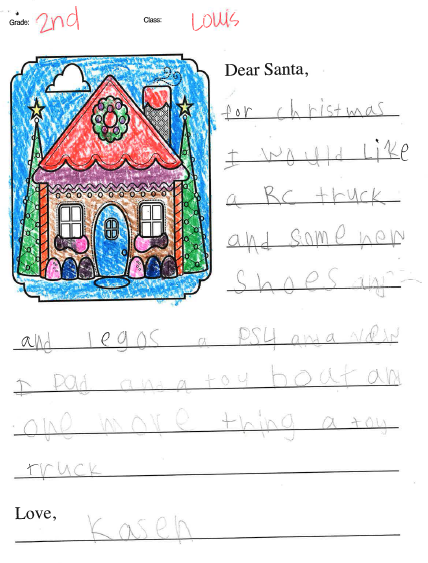 Grade: 2nd Class: Louis
Dear Santa,
for christmas
I would Like
a RC truck
and some new
shoes
and legos a PS4 and a new
I Pad and a toy bout an
one more thing a toy
truck
Love,
Kasen